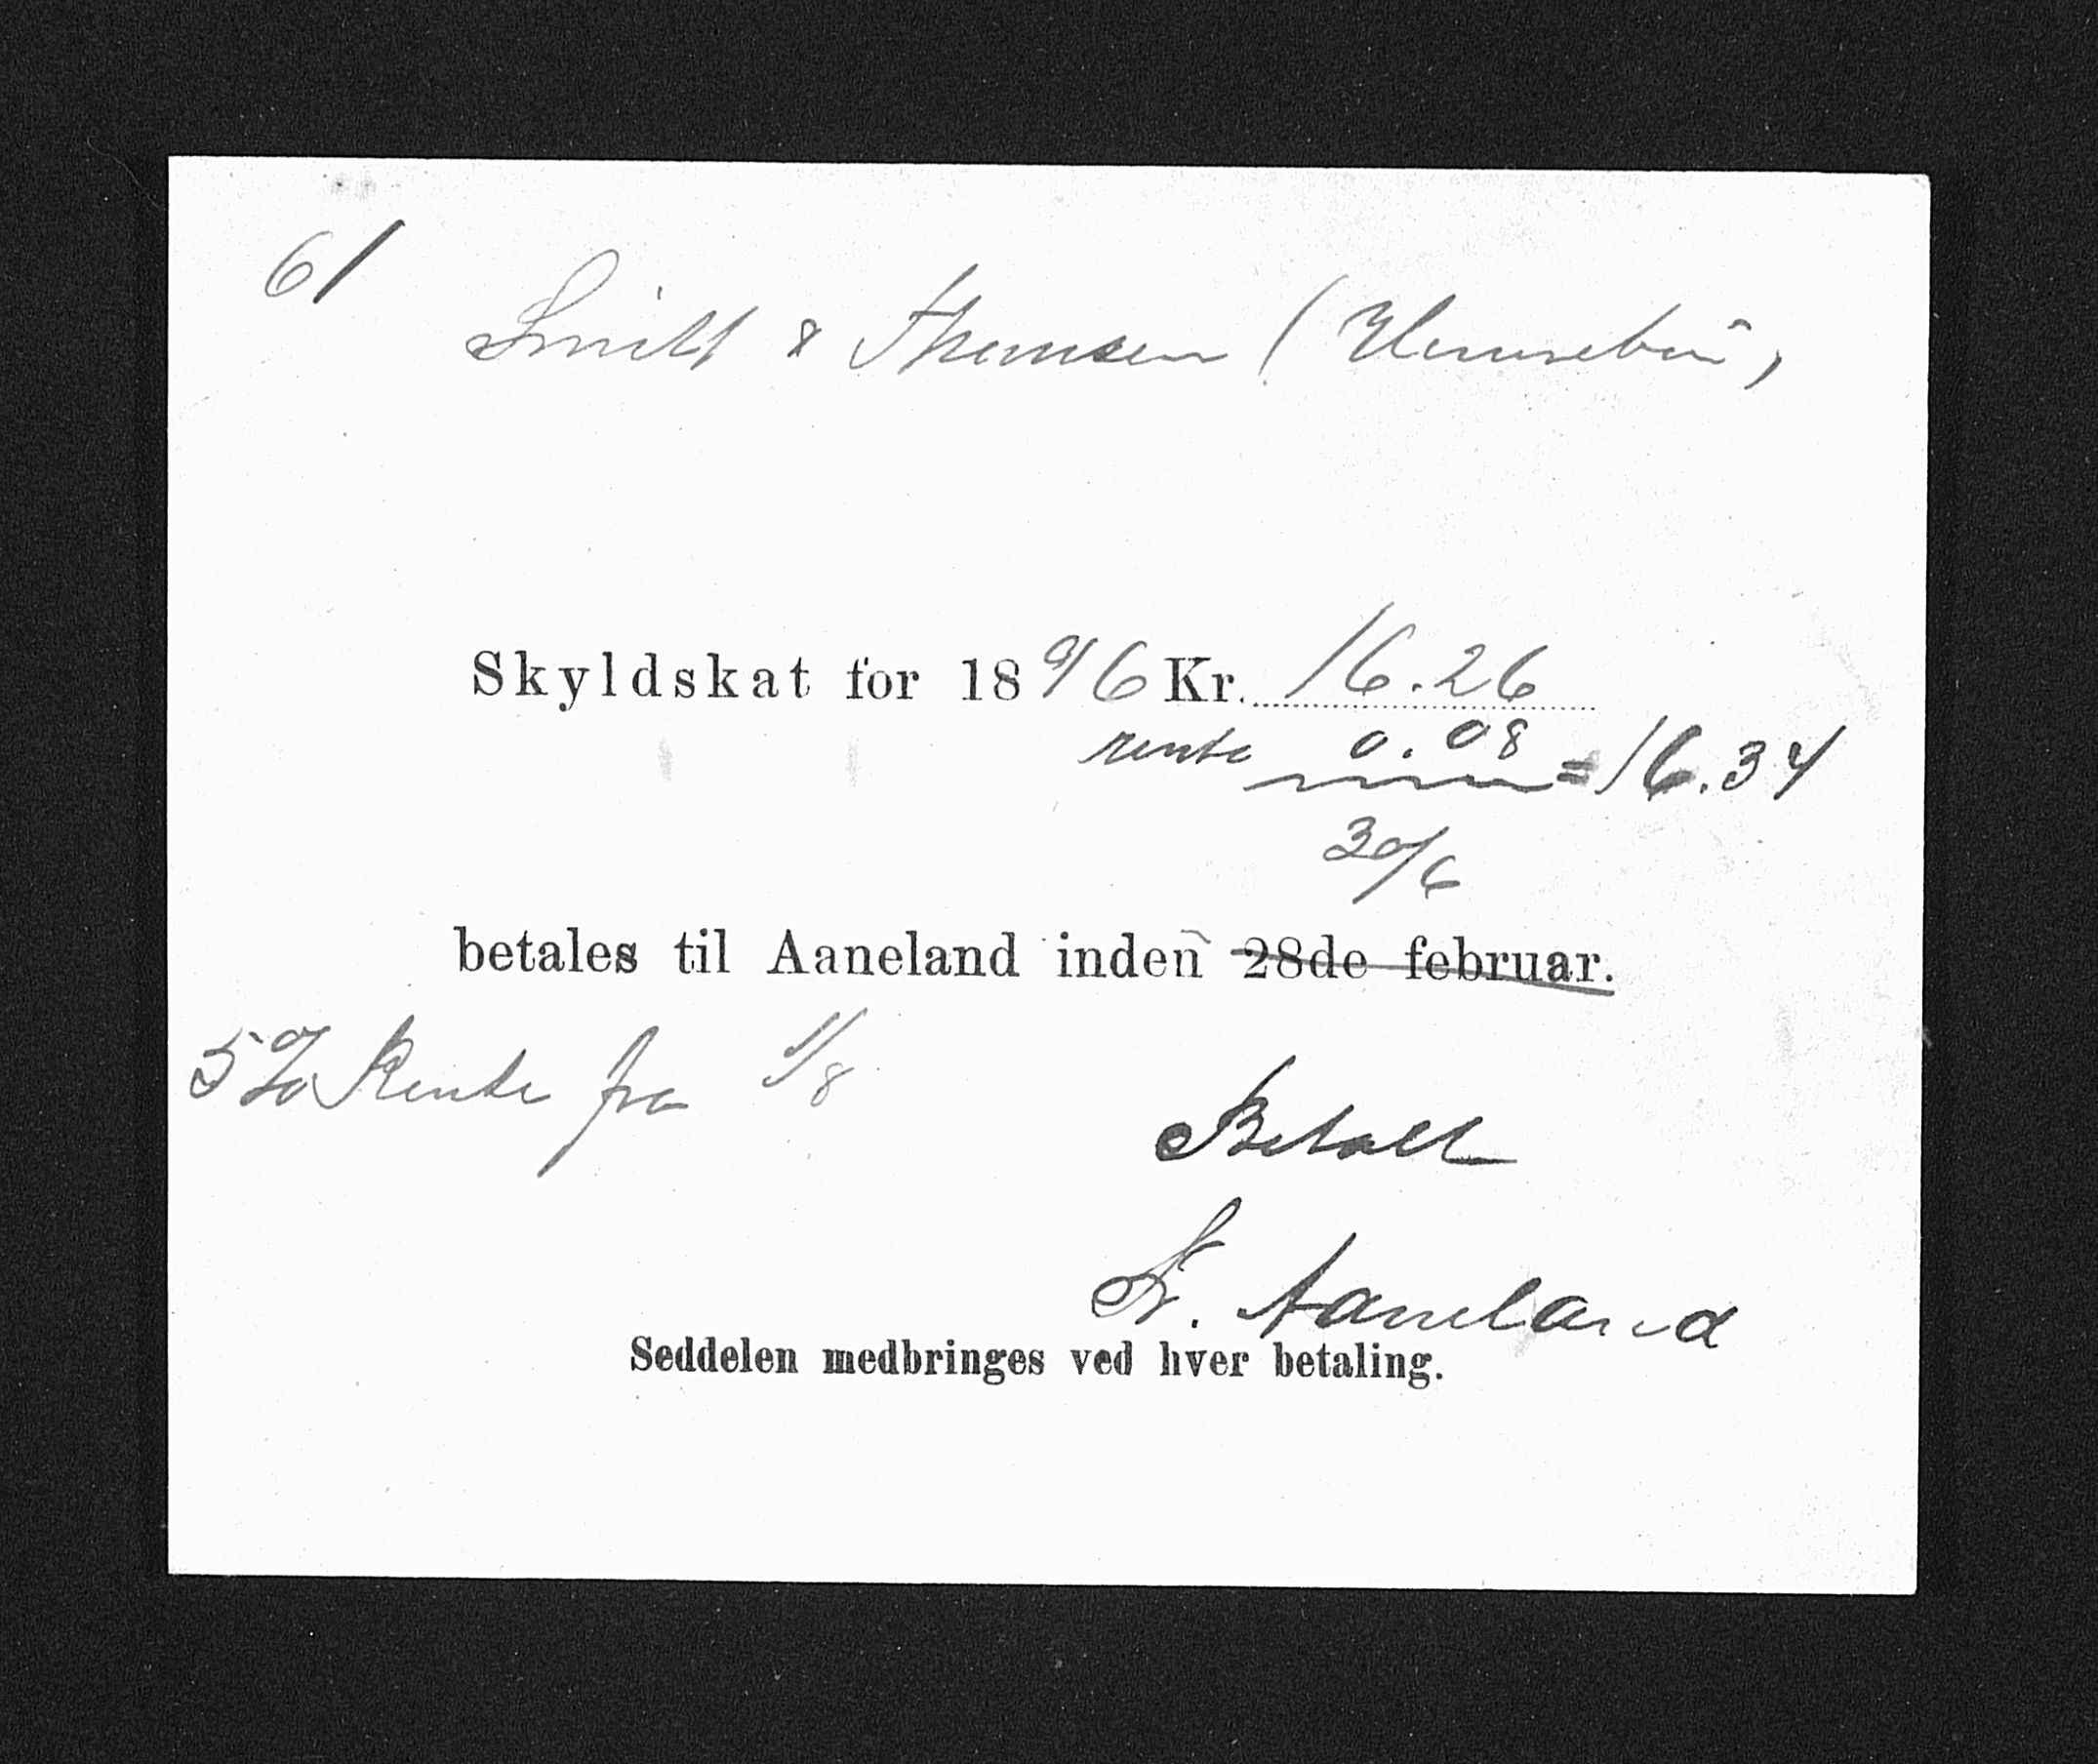 61
Smitt & Thomsen (Hennebö)
Skyldskat for 1896 Kr. 16.26
rente 0.08 = 16.34
30/6
betales til Aaneland inden 28de februar.
5 % Rente fra 1/8
Betalt
N. Aaneland
Seddelen medbringes ved hver betaling.